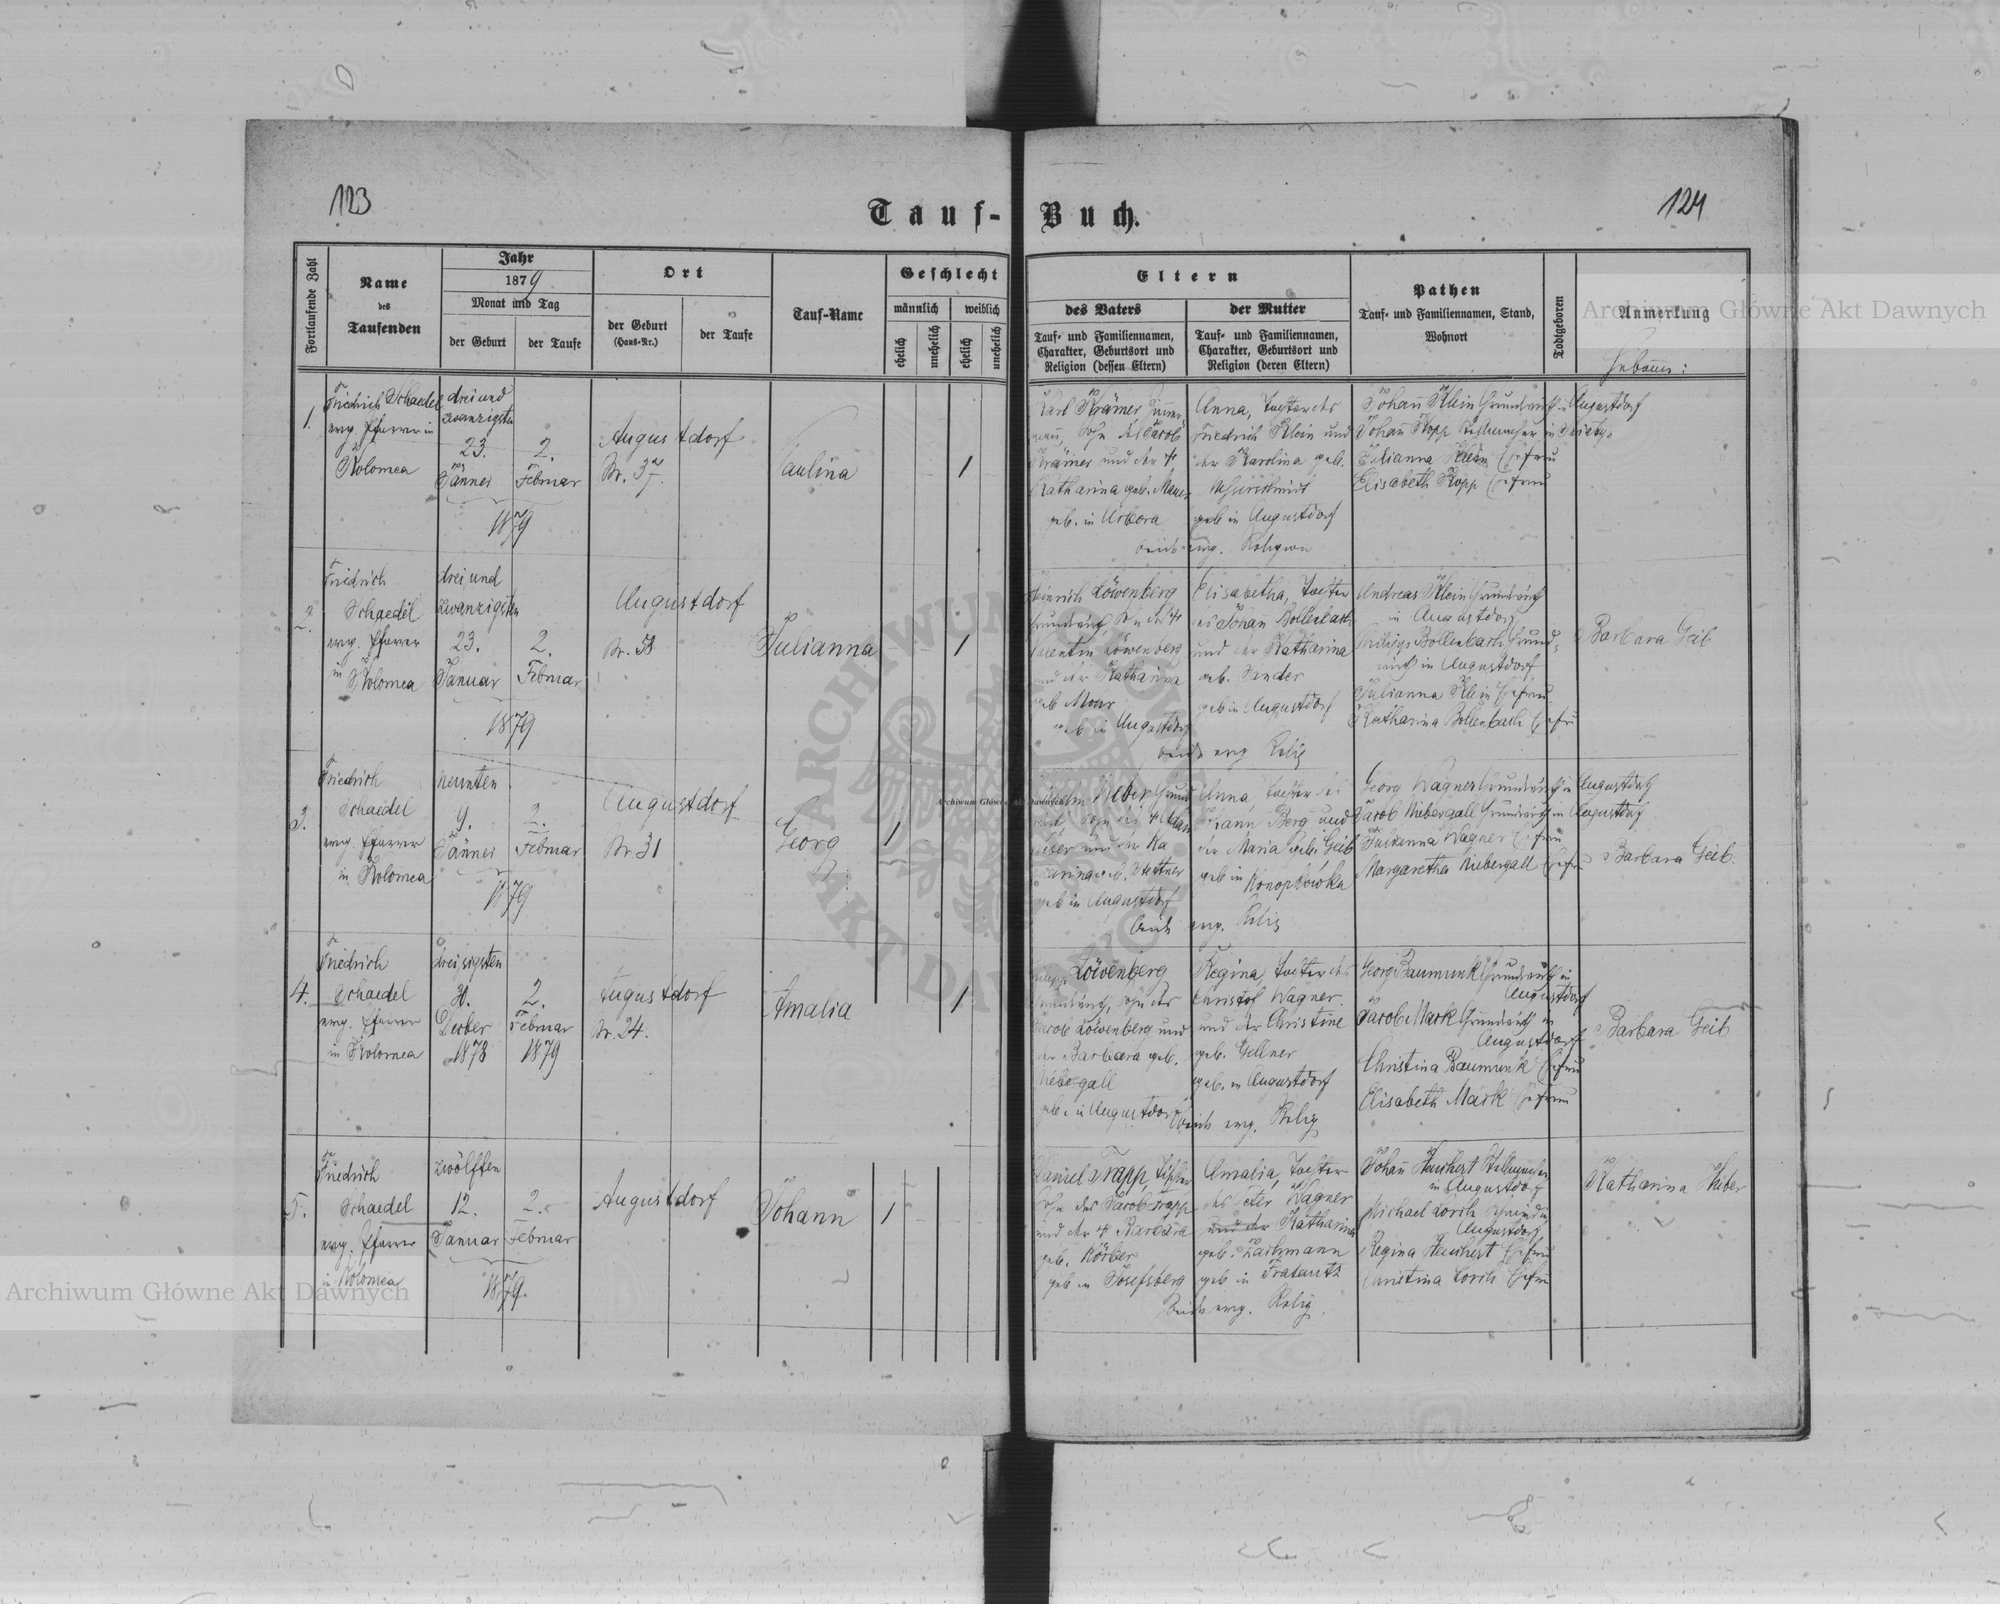 123
124
Tauf-Buch.
Fortlaufende Zahl
Name
des
Taufenden
Jahr
1879
Monat und Tag
der Geburt
der Taufe
Ort
der Geburt
(Haus-Nr.)
der Taufe
Tauf-Name
Geschlecht
männlich
weiblich
ehelich
unehelich
ehelich
unehelich
Eltern
des Vaters
Tauf- und Familiennamen,
Charakter, Geburtsort und
Religion (dessen Eltern)
der Mutter
Tauf- und Familiennamen,
Charakter, Geburtsort und
Religion (deren Eltern)
Pathen
Tauf- und Familiennamen, Stand,
Wohnort
Todtgeboren
Anmerkung
Hebamme:
1.
Friedrich Schaedel
evg. Pfarrer in
Kolomea
drei und
zwanzigsten
23.
Jänner
2.
Februar
1879
Augustdorf
Nr. 37.
Paulina
1
Karl Krämer
Sohn des Jakob
Krämer und der
Katharina geb.
geb. in Ugartsthal
Anna, Tochter des
Friedrich Klein und
der Karolina geb.
geb in Augustdorf
beide evg. Religion
Johann Klein Grundwirth in Augustdorf
Johann Kopp
Julianna Klein Ehefrau
Elisabeth Kopp Ehefrau
2.
Friedrich
Schaedel
evg. Pfarrer
in Kolomea
drei und
zwanzigsten
23.
Januar
2.
Februar
1879
Augustdorf
Nr. 58
Julianna
1
Heinrich Löwenberg
Grundwirth, Sohn des
Valentin Löwenberg
und der Katharina
geb Mohr
geb in Augustdorf
Elisabetha, Tochter
des Johan Bollenbach
und der Katharina
geb. Sander
geb in Augustdorf
beide evg Relig
Andreas Klein Grundwirth
in Augustdorf
Philipp Bollenbach Grund-
wirth in Augustdorf
Julianna Klein Ehefrau
Katharina Bollenbach Ehefr
Barbara Geib
3.
Friedrich
Schaedel
evg. Pfarrer
in Kolomea
neunten
9.
Jänner
2.
Februar
1879
Augustdorf
Nr. 31
Georg
1
Wilhelm Weber Grund
wirth Sohn des
Weber und der Ka
tharina geb.
geb in Augustdorf
Anna, Tochter des
Johann Berg und
der Maria geb. Geib
geb in Konopkowka
beide evg. Relig
Georg Wagner Grundwirth in Augustdorf
Jacob Niebergall Grundwirth in Augustdorf
Julianna Wagner Ehefrau
Margaretha Niebergall Ehefrau
Barbara Geib.
4.
Friedrich
Schaedel
evg. Pfarrer
in Kolomea
dreisigsten
30.
Dezber
1878
2.
Februar
1879
Augustdorf
Nr. 24.
Amalia
1
Philipp Löwenberg
Grundwirth, Sohn des
Jacob Löwenberg und
der Barbara geb.
Niebergall
geb. in Augustdorf
Regina, Tochter des
Christof Wagner
und der Christine
geb. Gellner
geb. in Augustdorf
beide evg. Relig
Georg Baumunk Grundwirth in
Augustdorf
Jacob Mark Grundwirth in
Augustdorf
Christina Baumunk Ehefrau
Elisabeth Mark Ehefrau
Barbara Geib
5.
Friedrich
Schaedel
evg. Pfarrer
in Kolomea
zwölften
12.
Januar
2.
Februar
1879.
Augustdorf
Johann
1
Daniel Trapp, Tischler
Sohn des Jacob Trapp
und der Barbara
geb. Körber
geb in Josefsberg
Amalia, Tochter
des Peter Wagner
und der Katharina
geb. Zachmann
geb in Fratautz
beide evg. Relig.
Johan
in Augustdorf
Michael Lorch
Augustdorf
Regina
Christina Lorch Ehefrau
Katharina Huber
Archiwum Główne Akt Dawnych
Archiwum Główne Akt Dawnych
Archiwum Główne Akt Dawnych
ARCHIWUM GŁÓWNE AKT DAWNYCH